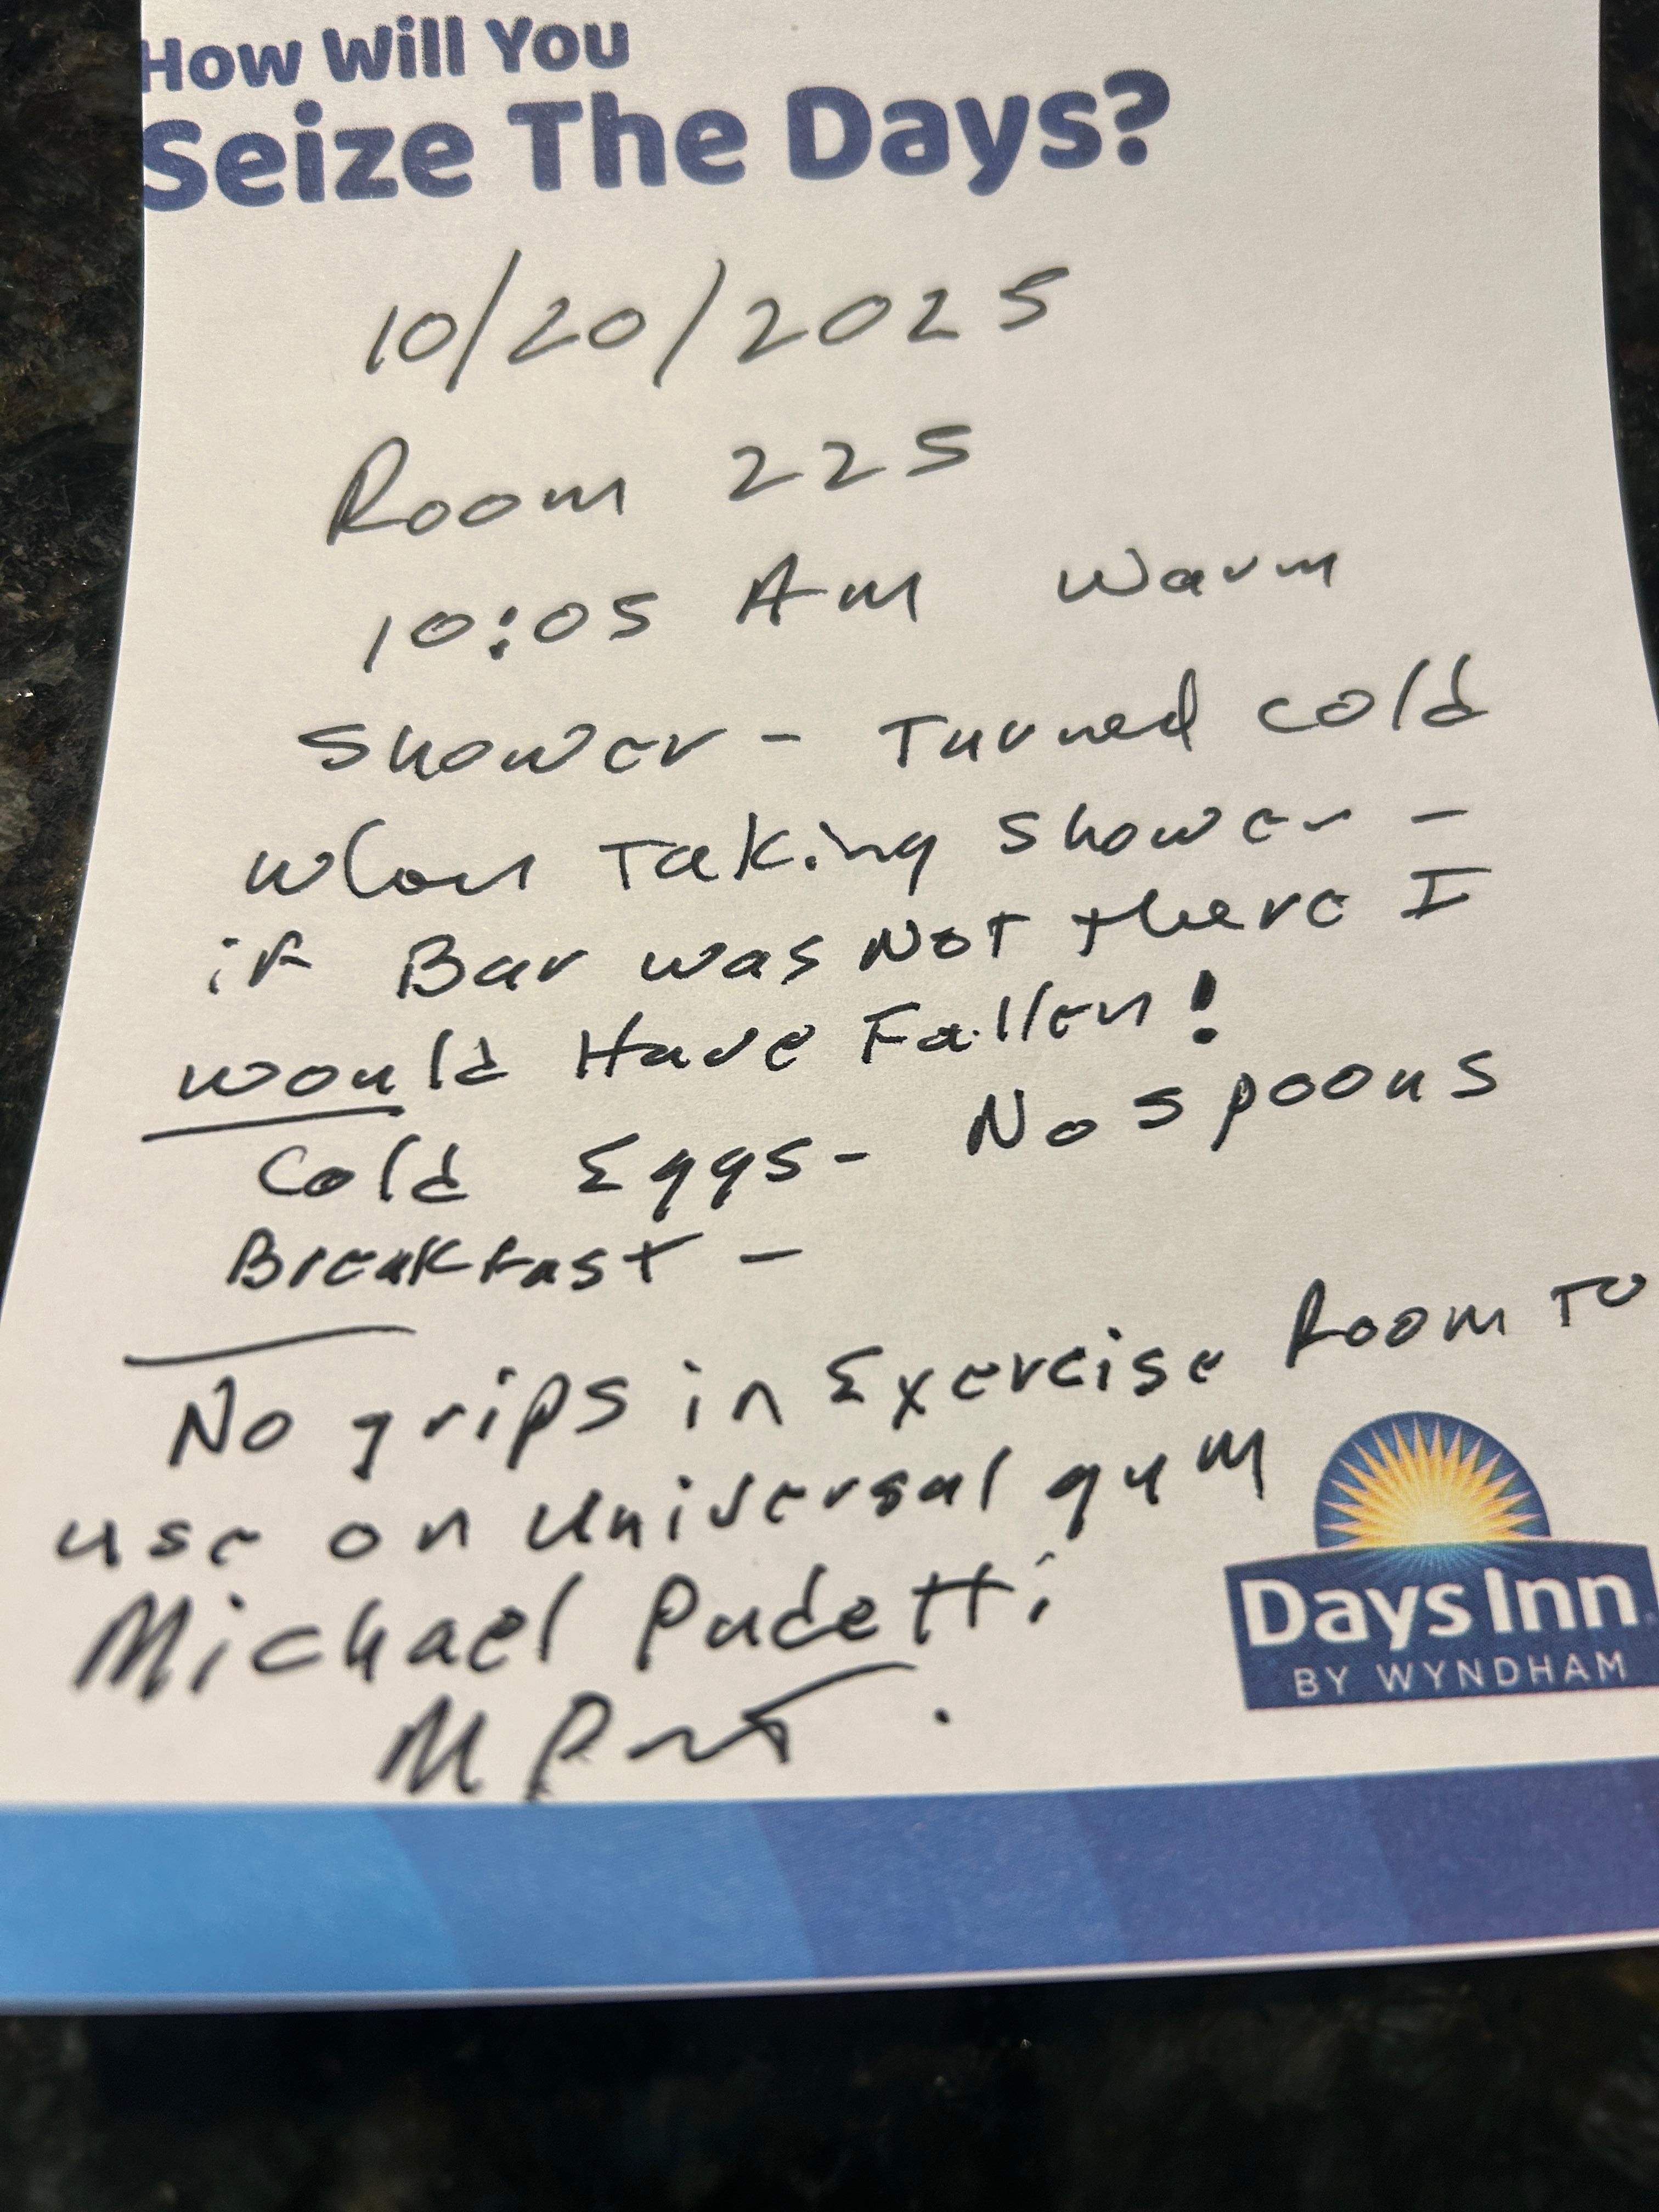 How Will You
Seize The Days?
10/20/2025
Room 225
10:05 AM Warm
Shower - Turned cold
When Taking Shower -
if Bar was Not there I
would Have Fallen!
Cold Eggs - No spoons
Breakfast -
No grips in Exercise Room To
use on Universal gym
Michael Pudetti
Days Inn
BY WYNDHAM